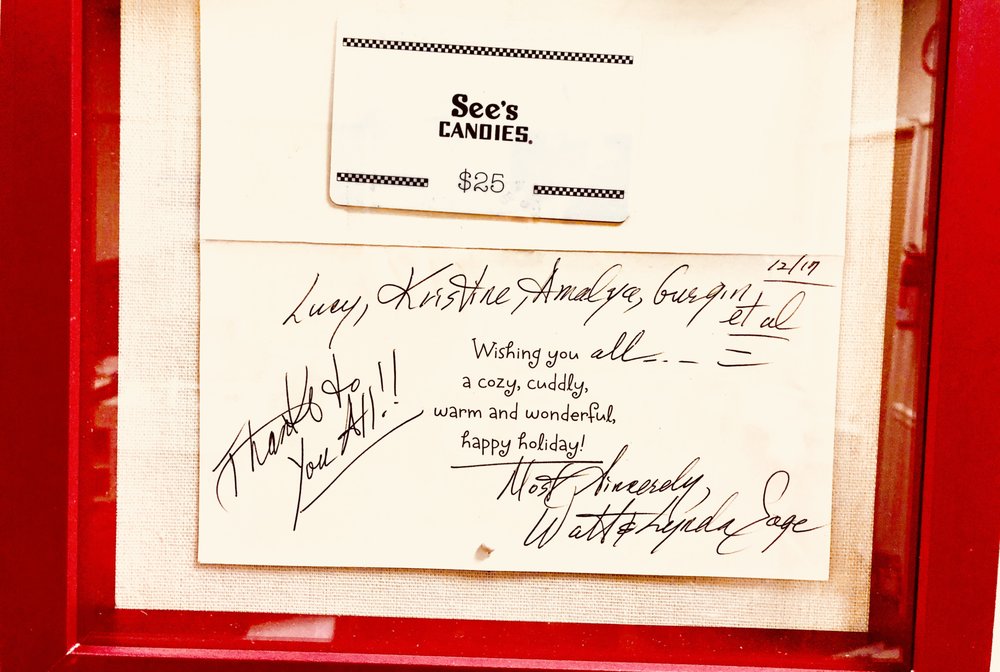 See's
CANDIES.
$25
12/17
Lucy, Kristine, Amalya, Gurgin
et al
Wishing you all
a cozy, cuddly,
warm and wonderful,
happy holiday!
Thanks to
You All!!
Most Sincerely,
Watt & Lynda Sage